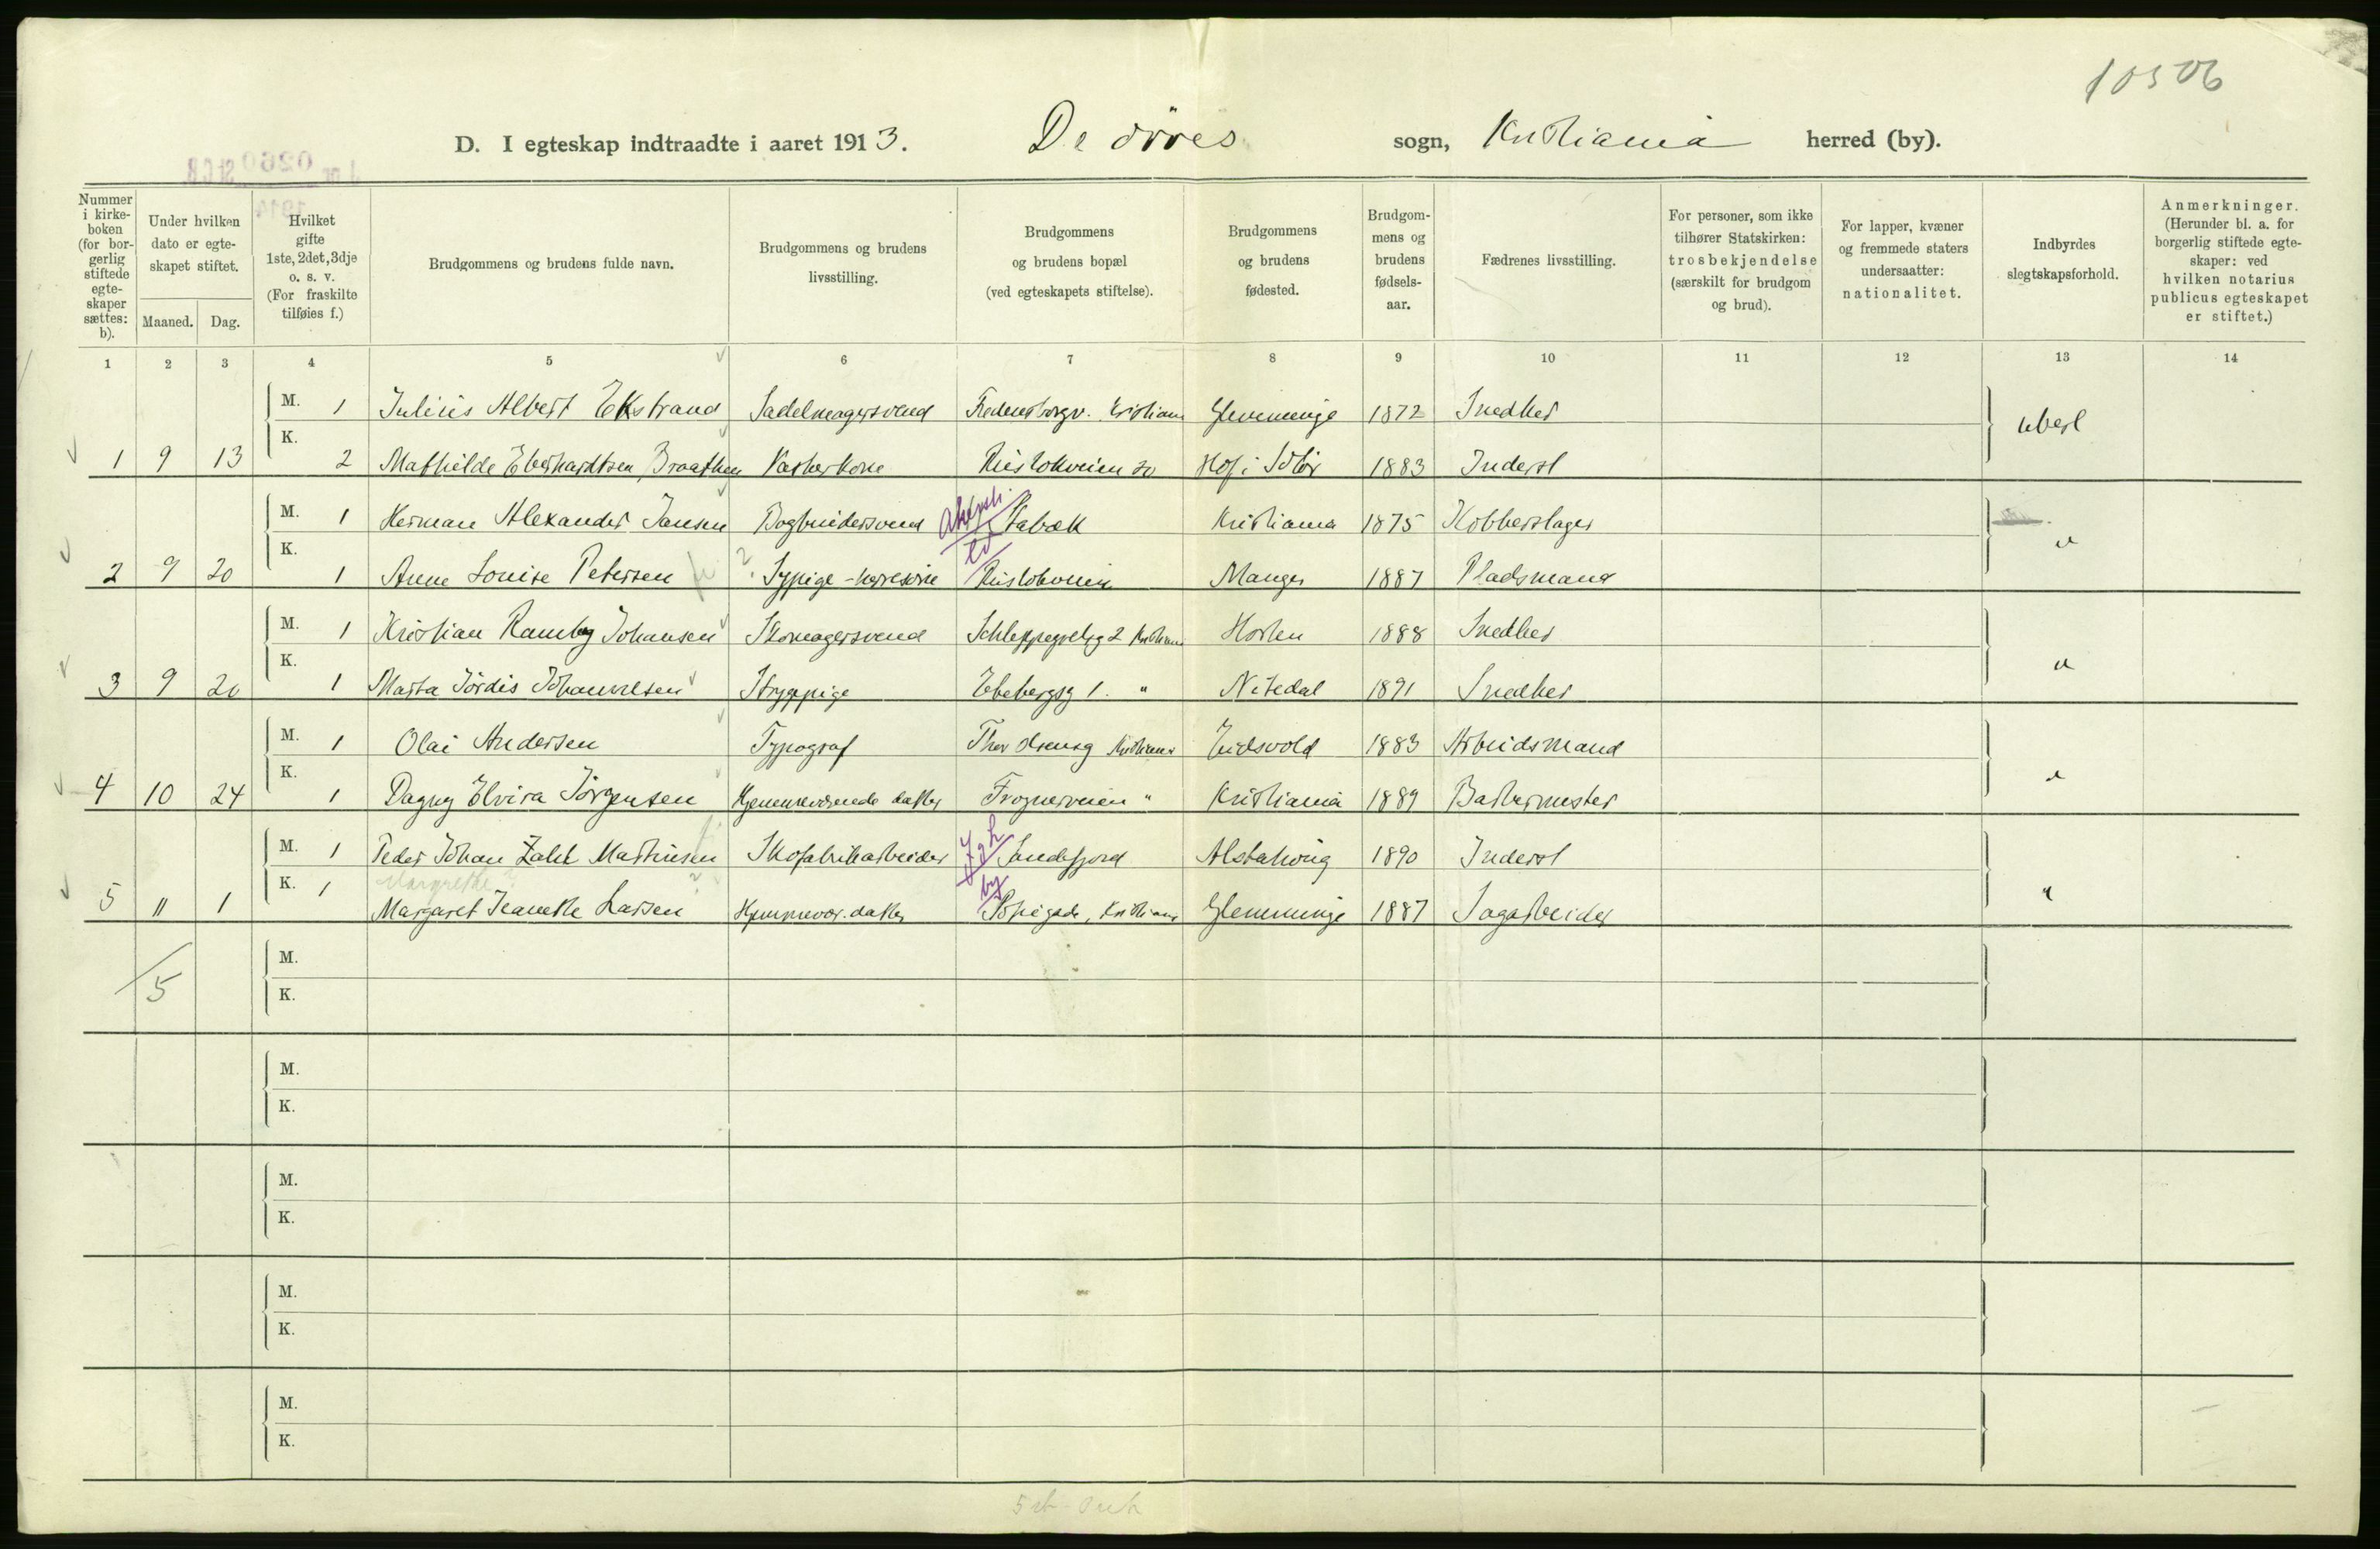 10506
D. I egteskap indtraadte i aaret 1913. De døves sogn, Kristiania herred (by).
Nummer i kirke-boken (for bor-gerlig stiftede egte-skaper sættes: b).
Under hvilken dato er egte-skapet stiftet.
Maaned. Dag.
Hvilket gifte 1ste, 2det, 3dje o. s. v. (For fraskilte tilføies f.)
Brudgommens og brudens fulde navn.
Brudgommens og brudens livsstilling.
Brudgommens og brudens bopæl (ved egteskapets stiftelse).
Brudgommens og brudens fødested.
Brudgom-mens og brudens fødsels-aar.
Fædrenes livsstilling.
For personer, som ikke tilhører Statskirken: trosbekjendelse (særskilt for brudgom og brud).
For lapper, kvæner og fremmede staters undersaatter: nationalitet.
Indbyrdes slegtskapsforhold.
Anmerkninger. (Herunder bl. a. for borgerlig stiftede egte-skaper: ved hvilken notarius publicus egteskapet er stiftet.)
1 2 3 4 5 6 7 8 9 10 11 12 13 14
M. 1 Julius Albert Ekstrand Sadelmagersvend Fredensborgv. Kristiania Glemminge 1872 Snedker ubesl
1 9 13 K. 2 Mathilde Eberhardtsen Braathen Vaskerkone Ruslokveien 20 Hof i Solør 1883 Inderst
M. 1 Herman Alexander Jansen Bogbindersvend Stabæk Kristiania 1875 Kobberslager
2 9 20 K. 1 Anne Louise Petersen Sypige Ruslokveien Manger 1887 Pladsmand
M. 1 Kristian Ramberg Johansen Skomagersvend Schleppegrelsg 2 Horten 1888 Snedker
3 9 20 K. 1 Marta Jørdis Johannesen Strygepige Ekebergsg 1. " Nitedal 1891 Snedker
M. 1 Olai Andersen Typograf Thor Olsensg Kristiania Eidsvold 1883 Arbeidsmand
4 10 24 K. 1 Dagny Elvira Jørgensen Hjemmeværende datter Frognerveien " Kristiania 1889 Barbermester
M. 1 Peder Johan Zahl Martinsen Skofabrikarbeider Sandefjord Alstahoug 1890 Inderst
5 11 1 K. 1 Margrethe
Margaret Jeanette Larsen Hjemmevær. datter Kristiania Glemminge 1887 Sagarbeider
5
M.
K.
M.
K.
M.
K.
M.
K.
M.
K.